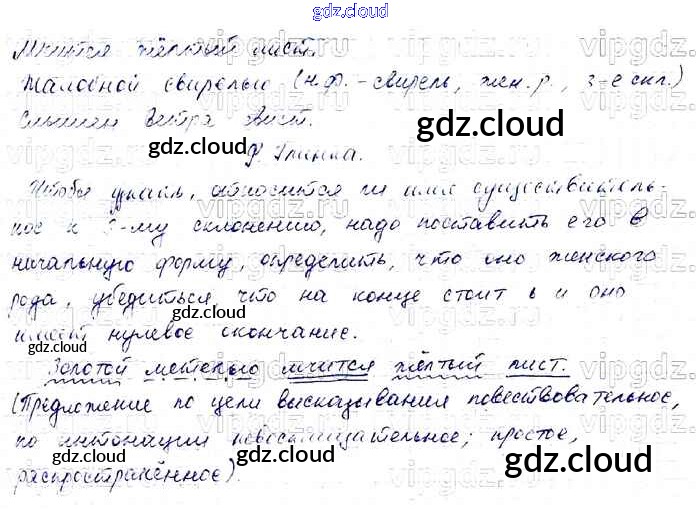 gdz.cloud
Мчится жёлтый лист.
Жалобной свирелью (н.ф. - свирель, жен. р., 3-е скл.)
Слышен ветра свист.
Ф. Глинка.
Чтобы узнать, относится ли имя существитель-
ное к 3-му склонению, надо поставить его в
начальную форму, определить, что оно женского
рода, убедиться, что на конце стоит ь и оно
имеет нулевое окончание.
Золотой метелью мчится жёлтый лист.
(Предложение по цели высказывания повествовательное,
по интонации невосклицательное; простое,
распространённое).